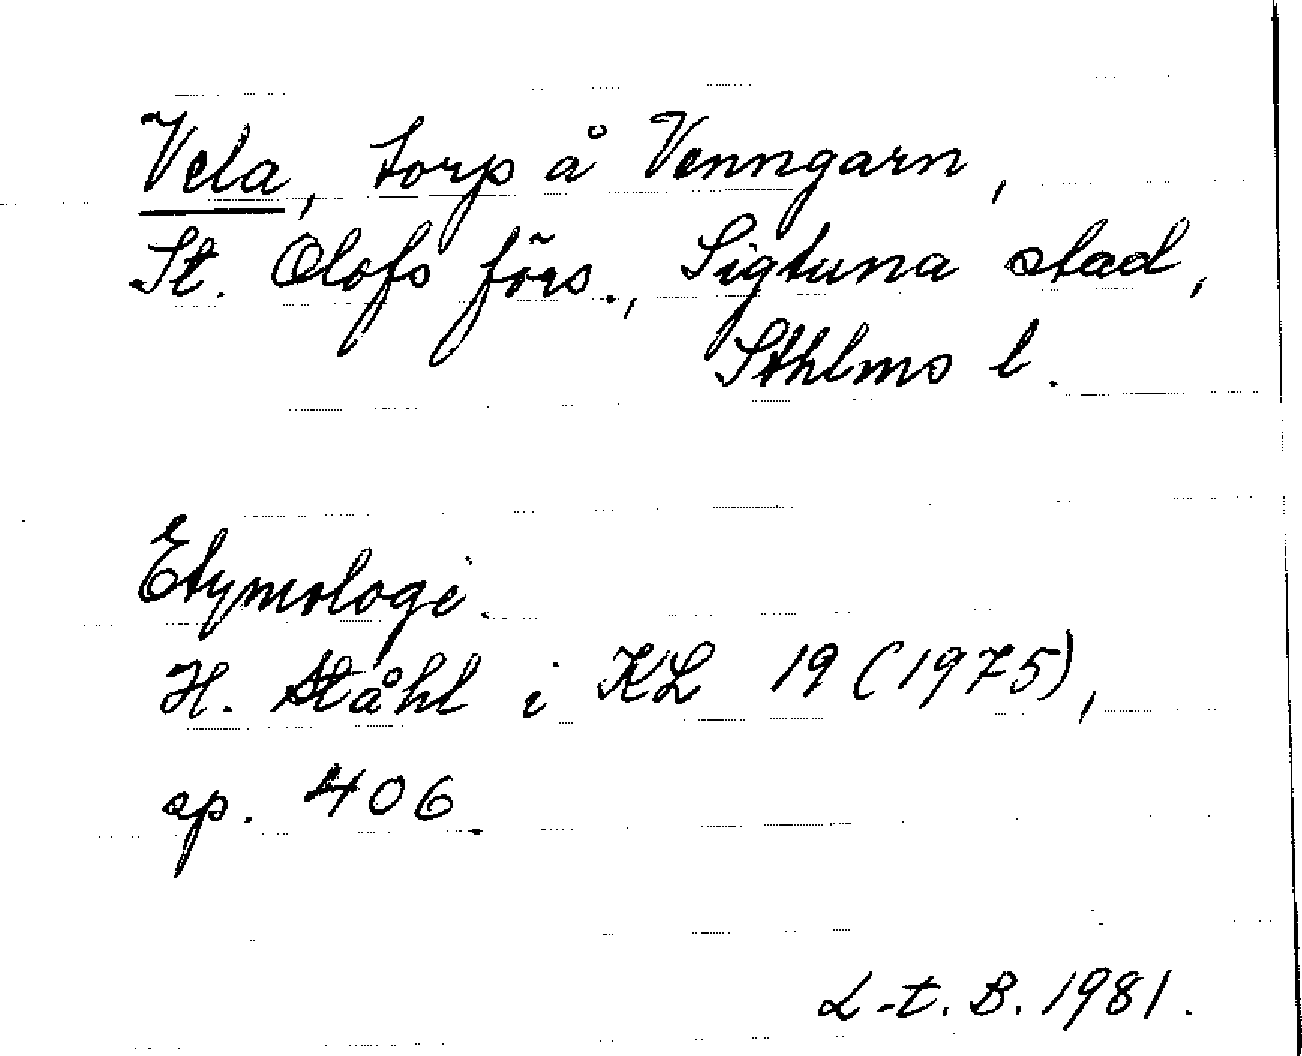 Vela, torp å Venngarn,
St. Olofs förs., Sigtuna stad,
Sthlms l.
Etymologi.
H. Ståhl i KL 19 (1975),
sp. 406.
L-t. B. 1981.